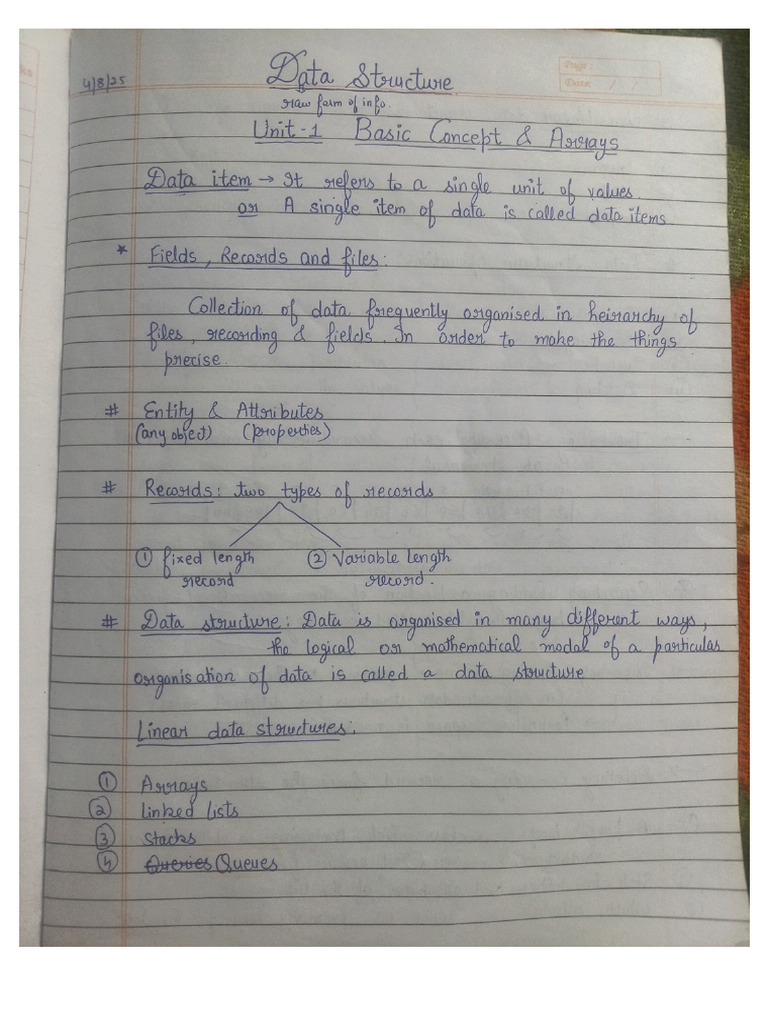 4/8/25
Data Structure
raw form of info.
Unit-1 Basic Concept & Arrays
Page:
Date: / /
Data item → It refers to a single unit of values
or A single item of data is called data items.
* Fields, Records and files:
Collection of data frequently organised in heirarchy of
files, recording & fields. In order to make the things
precise.
# Entity & Attributes
(any object) (properties)
# Records: two types of records
① fixed length ② Variable length
record record.
# Data structure: Data is organised in many different ways,
the logical or mathematical modal of a particular
organisation of data is called a data structure
Linear data structures:
① Arrays
② Linked Lists
③ Stacks
④ Queries Queues